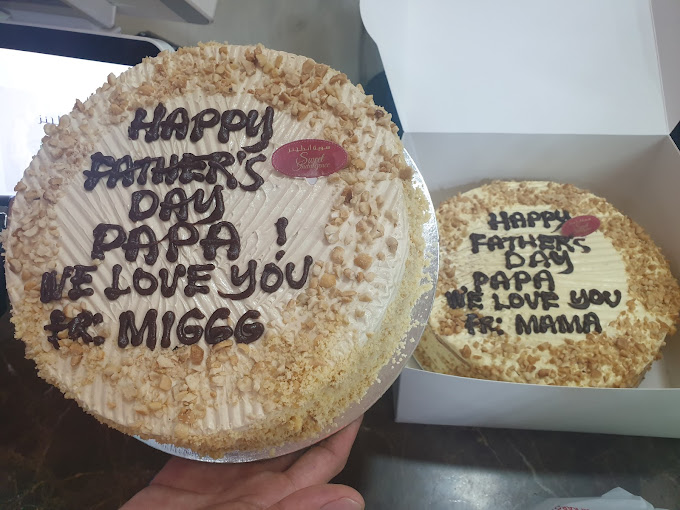 HAPPY
FATHER'S
DAY
PAPA !
WE LOVE YOU
FR: MIGGG
Sweet
HAPPY
FATHER'S
DAY
PAPA
WE LOVE YOU
FR: MAMA